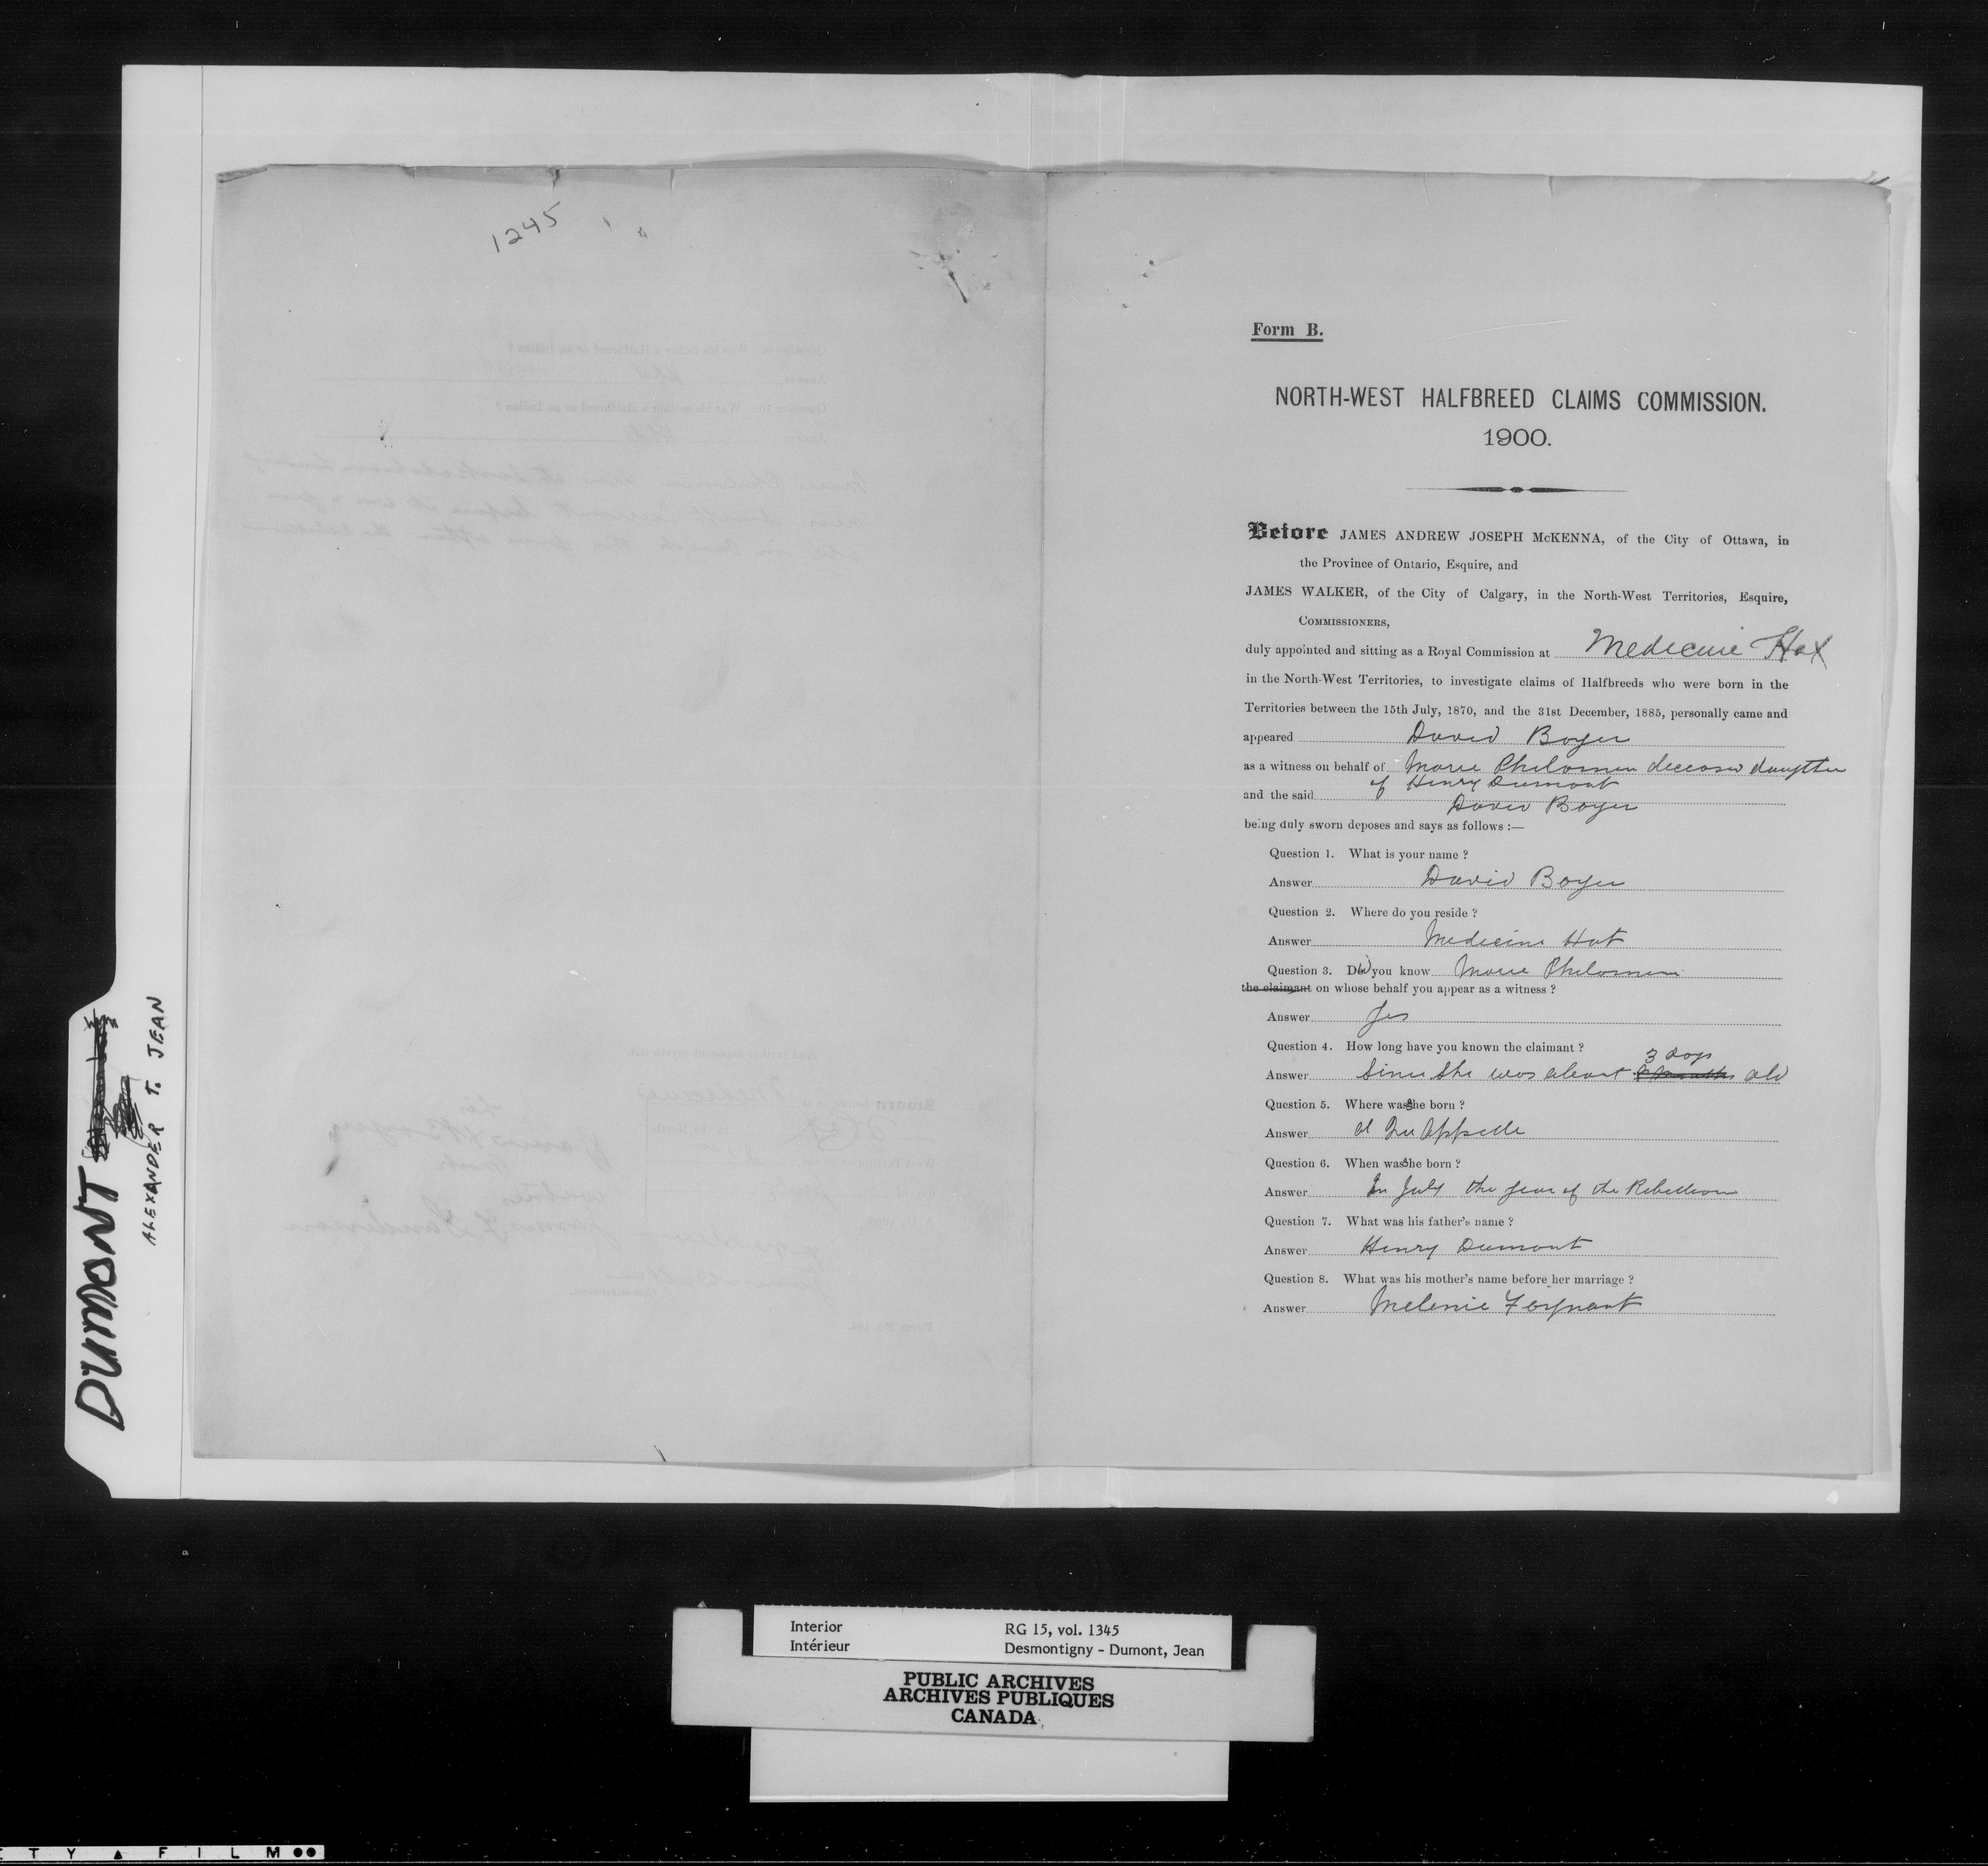 1245
Form B.
NORTH-WEST HALFBREED CLAIMS COMMISSION.
1900.
Before JAMES ANDREW JOSEPH McKENNA, of the City of Ottawa, in
the Province of Ontario, Esquire, and
JAMES WALKER, of the City of Calgary, in the North-West Territories, Esquire,
COMMISSIONERS,
duly appointed and sitting as a Royal Commission at Medecine Hat
in the North-West Territories, to investigate claims of Halfbreeds who were born in the
Territories between the 15th July, 1870, and the 31st December, 1885, personally came and
appeared David Boyer
as a witness on behalf of Marie Philomen deceased daughter
of Henry Dumont
and the said David Boyer
being duly sworn deposes and says as follows :—
Question 1. What is your name ?
Answer David Boyer
Question 2. Where do you reside ?
Answer Medicine Hat
Question 3. Did you know Marie Philomen
the claimant on whose behalf you appear as a witness ?
Answer Yes
Question 4. How long have you known the claimant ?
3 days
Answer Since she was about old
Question 5. Where was she born ?
Answer at Qu Appelle
Question 6. When was she born ?
Answer In July the year of the Rebellion
Question 7. What was his father's name ?
Answer Henry Dumont
Question 8. What was his mother's name before her marriage ?
Answer Melenie
DUMONT
ALEXANDER T. JEAN
Interior RG 15, vol. 1345
Intérieur Desmontigny - Dumont, Jean
PUBLIC ARCHIVES
ARCHIVES PUBLIQUES
CANADA
T Y ▲ F I L M ●●